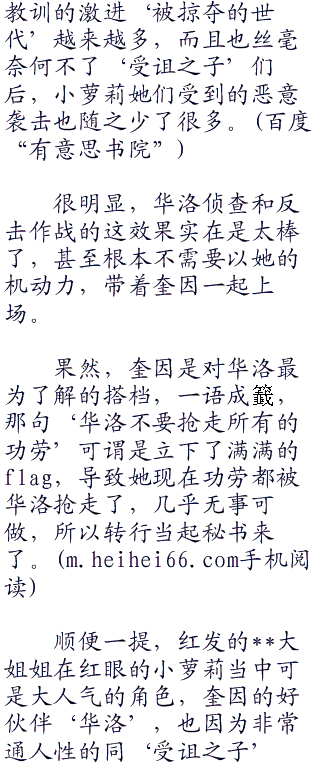 教训的激进‘被掠夺的世
代’越来越多，而且也丝毫
奈何不了‘受诅之子’们
后，小萝莉她们受到的恶意
袭击也随之少了很多。(百度
“有意思书院”)
很明显，华洛侦查和反
击作战的这效果实在是太棒
了，甚至根本不需要以她的
机动力，带着奎因一起上
场。
果然，奎因是对华洛最
为了解的搭档，一语成籤，
那句‘华洛不要抢走所有的
功劳’可谓是立下了满满的
flag，导致她现在功劳都被
华洛抢走了，几乎无事可
做，所以转行当起秘书来
了。(m.heihei66.com手机阅
读)
顺便一提，红发的**大
姐姐在红眼的小萝莉当中可
是大人气的角色，奎因的好
伙伴‘华洛’，也因为非常
通人性的同‘受诅之子’